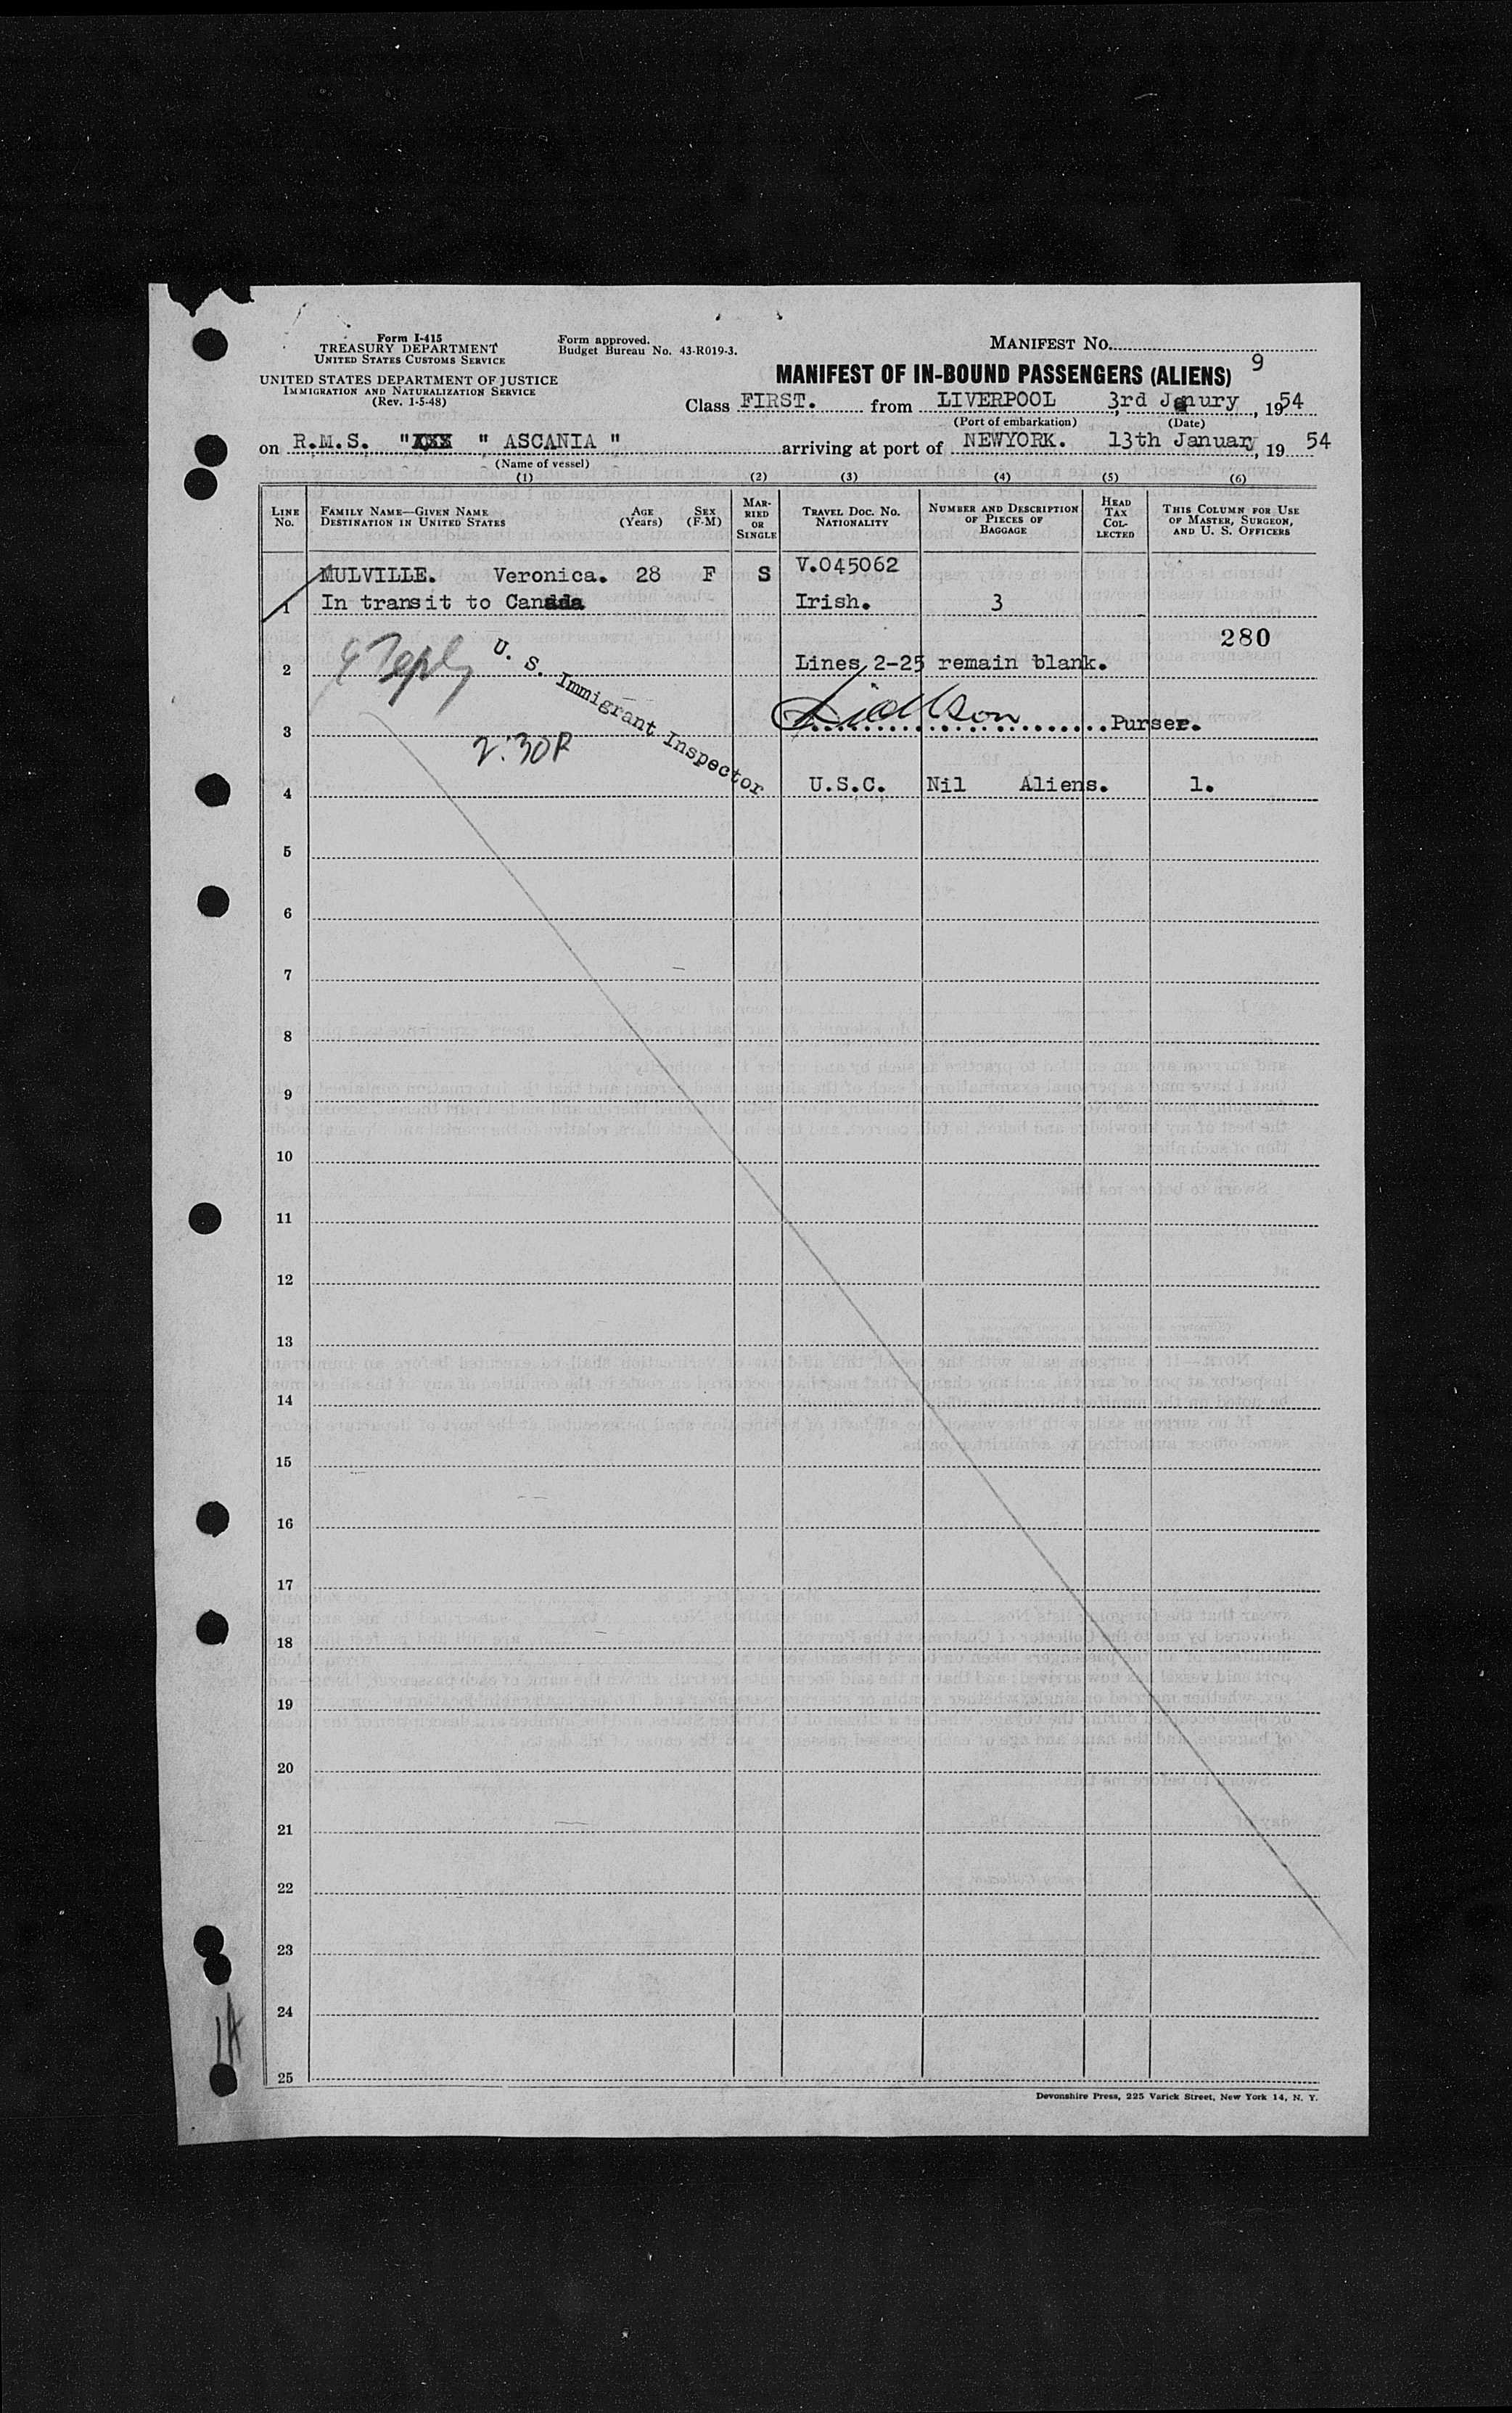 Form I-415
TREASURY DEPARTMENT
UNITED STATES CUSTOMS SERVICE
UNITED STATES DEPARTMENT OF JUSTICE
IMMIGRATION AND NATURALIZATION SERVICE
(Rev. 1-5-48)
Form approved.
Budget Bureau No. 43-R019-3.
MANIFEST No.
9
MANIFEST OF IN-BOUND PASSENGERS (ALIENS)
Class FIRST. from LIVERPOOL 3rd Janury, 1954
(Port of embarkation) (Date)
on R.M.S. "XXX " ASCANIA " arriving at port of NEWYORK. 13th January, 19 54
(Name of vessel)
(1) (2) (3) (4) (5) (6)
LINE No. FAMILY NAME—GIVEN NAME DESTINATION IN UNITED STATES AGE (Years) SEX (F-M) MARRIED OR SINGLE TRAVEL DOC. NO. NATIONALITY NUMBER AND DESCRIPTION OF PIECES OF BAGGAGE HEAD TAX COLLECTED THIS COLUMN FOR USE OF MASTER, SURGEON, AND U. S. OFFICERS
MULVILLE. Veronica. 28 F S V.045062
1 In transit to Canada Irish. 3
280
2 Lines 2-25 remain blank.
U. S. Immigrant Inspector
3 Purser.
2:30P
4 U.S.C. Nil Aliens. 1.
5
6
7
8
9
10
11
12
13
14
15
16
17
18
19
20
21
22
23
24
25
1A
Devonshire Press, 225 Varick Street, New York 14, N. Y.